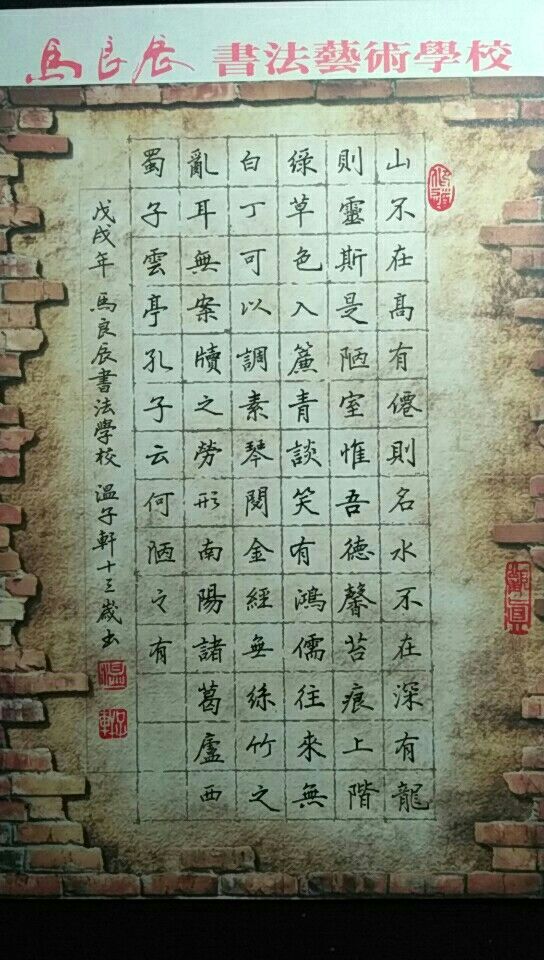 馬良辰 書法藝術學校
山不在高有僊則名水不在深有龍
則靈斯是陋室惟吾德馨苔痕上階
緑草色入簾青談笑有鴻儒往來無
白丁可以調素琴閱金經無絲竹之
亂耳無案牘之勞形南陽諸葛廬西
蜀子雲亭孔子云何陋之有
戊戌年 馬良辰書法學校 温子軒十三歲书